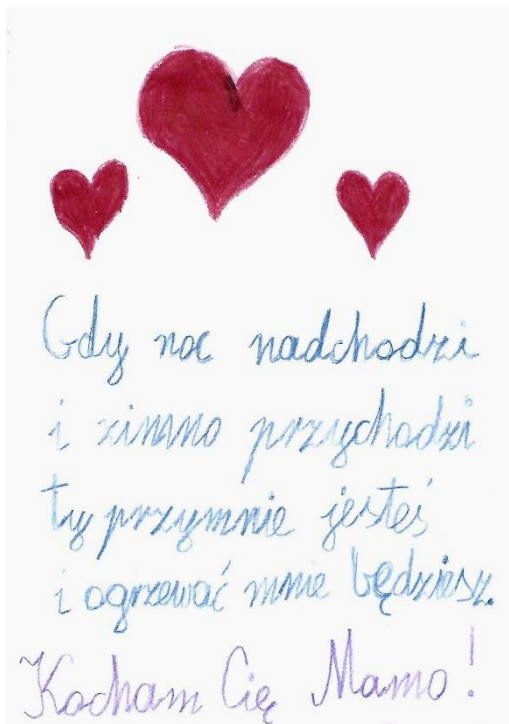 Gdy noc nadchodzi
i zimno przychodzi
ty przymnie jesteś
i ogrzewać mnie będziesz.
Kocham Cię Mamo!